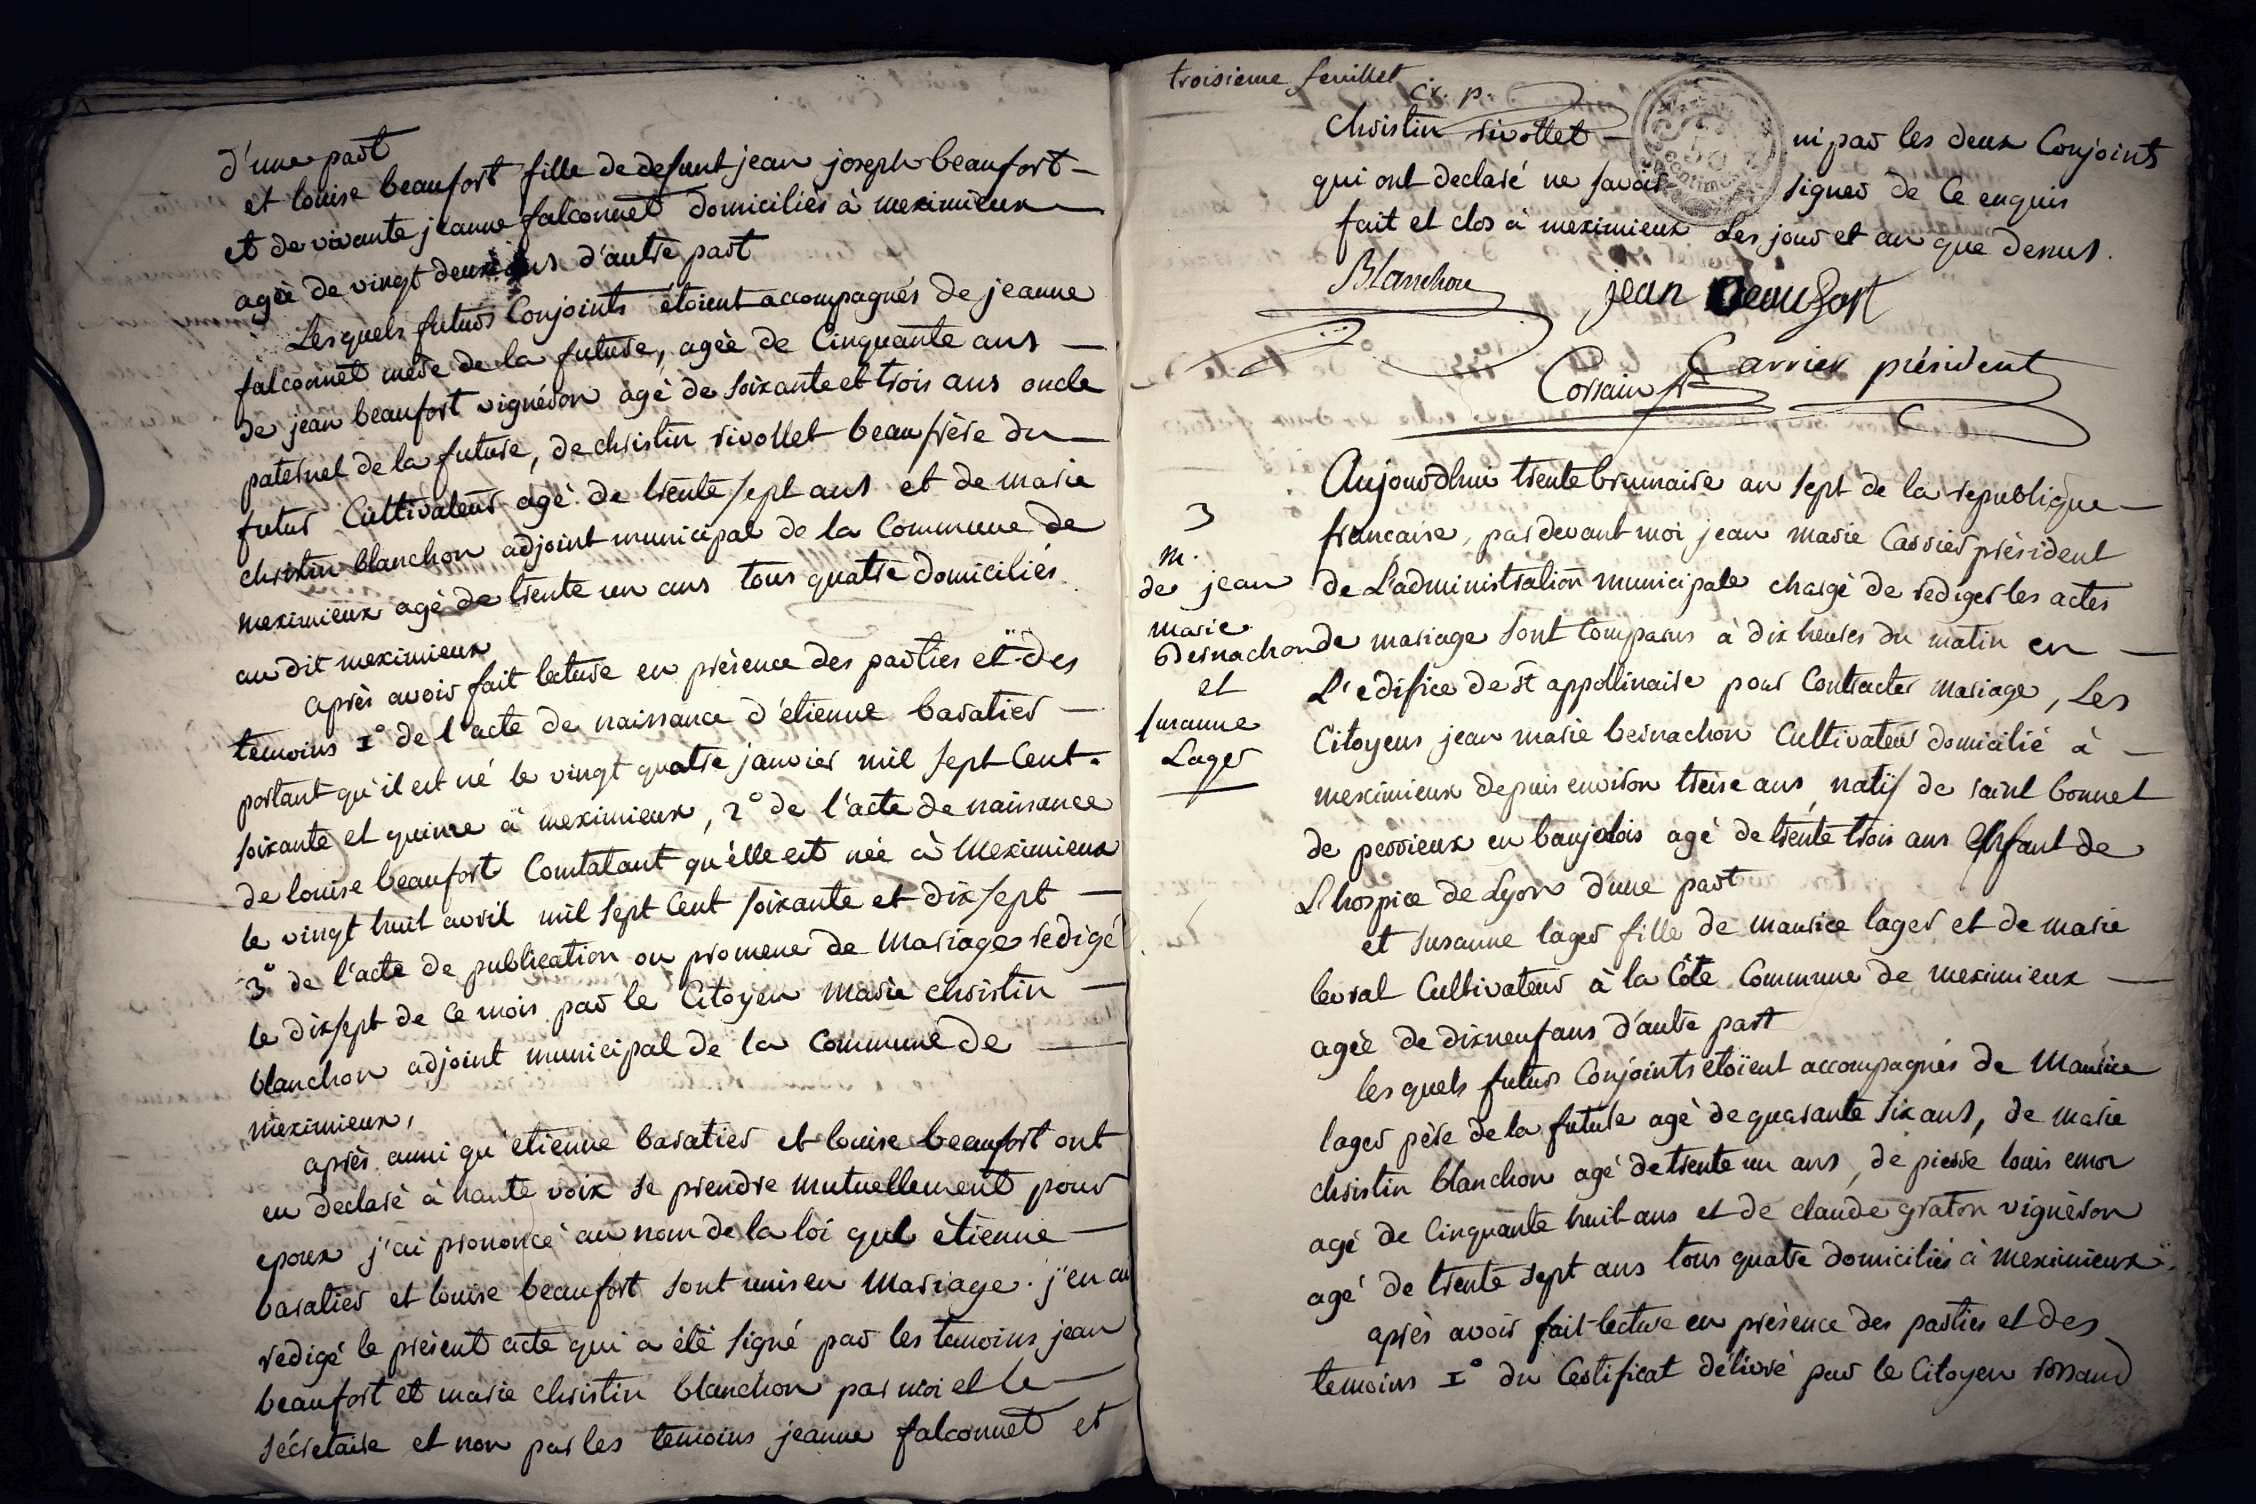 d'une part
et louise beaufort fille de defunt jean joseph beaufort —
et de vivante jeanne falconnet domiciliés à meximieux —
agée de vingt deux ans d'autre part
Lesquels futurs Conjoints étoient accompagnés de jeanne
falconnet mere de la future, agée de Cinquante ans —
de jean beaufort vigneron agé de soixante et trois ans oncle
paternel de la future, de christin rivollet beaufrère du —
futur Cultivateur agé de trente sept ans et de marie
christin blanchon adjoint municipal de la Commune de
meximieux agé de trente un ans tous quatre domiciliés
au dit meximieux
après avoir fait lecture en présence des parties et des
temoins 1° de l'acte de naissance d'etienne baratier —
portant qu'il est né le vingt quatre janvier mil sept Cent.
soixante et quinze à meximieux, 2° de l'acte de naissance
de louise beaufort Constatant qu'elle est née à Meximieux
le vingt huit avril mil sept Cent soixante et dix sept —
3° de l'acte de publication ou promesse de Mariage redigé
le dixsept de Ce mois par le Citoyen Marie christin —
blanchon adjoint municipal de la Commune de —
meximieux,
après aussi qu'etienne baratier et louise beaufort ont
eu declaré à haute voix se prendre mutuellement pour
epoux j'ai prononcé au nom de la loi que étienne —
baratier et louise beaufort sont unis en Mariage. j'en ai
redigé le présent acte qui a été signé par les temoins jean
beaufort et marie christin blanchon par moi et le —
sécretaire et non par les temoins jeanne falconnet et
troisieme feuillet
cr. p.
christin rivollet — ni par les deux Conjoints
50
centimes
qui ont declaré ne savoir signer de Ce enquis
fait et clos à meximieux Les jour et an que dessus.
Blanchon
jean Beaufort
Carrier président
3
m.
de jean
marie
bernachon
et
susanne
Lager
Aujourdhui trente brumaire an sept de la republique —
francaise, pardevant moi jean marie Carrier président
de L'administration municipale chargé de rediger les actes
de mariage sont Comparus à dix heures du matin en —
L'edifice de st appollinaire pour Contracter mariage, Les
Citoyens jean marie bernachon Cultivateur domicilié à —
meximieux depuis environ treise ans, natif de saint bonnet
de perrieux en baujolois agé de trente trois ans Enfant de
L'hospice de Lyon d'une part
et susanne lager fille de maurice lager et de marie
levrat Cultivateur à la Côte Commune de meximieux —
agée de dixneuf ans d'autre part
lesquels futurs Conjoints etoient accompagnés de Maurice
lager père de la future agé de quarante six ans, de marie
christin blanchon agé de trente un ans, de pierre louis
agé de Cinquante huit ans et de claude graton vigneron
agé de trente sept ans tous quatre domiciliés à meximieux.
après avoir fait lecture en présence des parties et des
temoins 1° du Certificat délivré par le Citoyen